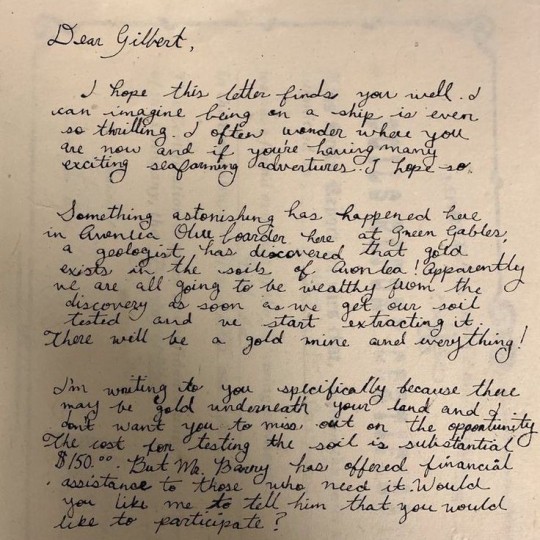 Dear Gilbert,
I hope this letter finds you well. I
can imagine being on a ship is even
so thrilling. I often wonder where you
are now and if you're having many
exciting seafarming adventures. I hope so.
Something astonishing has happened here
in Avonlea Our boarder here at Green Gables,
a geologist, has discovered that gold
exists in the soils of Avonlea! Apparently
we are all going to be wealthy from the
discovery as soon as we get our soil
tested and we start extracting it.
There will be a gold mine and everything!
I'm writing to you specifically because there
may be gold underneath your land and I
don't want you to miss out on the opportunity
The cost for testing the soil is substantial
$150.00. But Mr. Barry has offered financial
assistance to those who need it. Would
you like me to tell him that you would
like to participate?